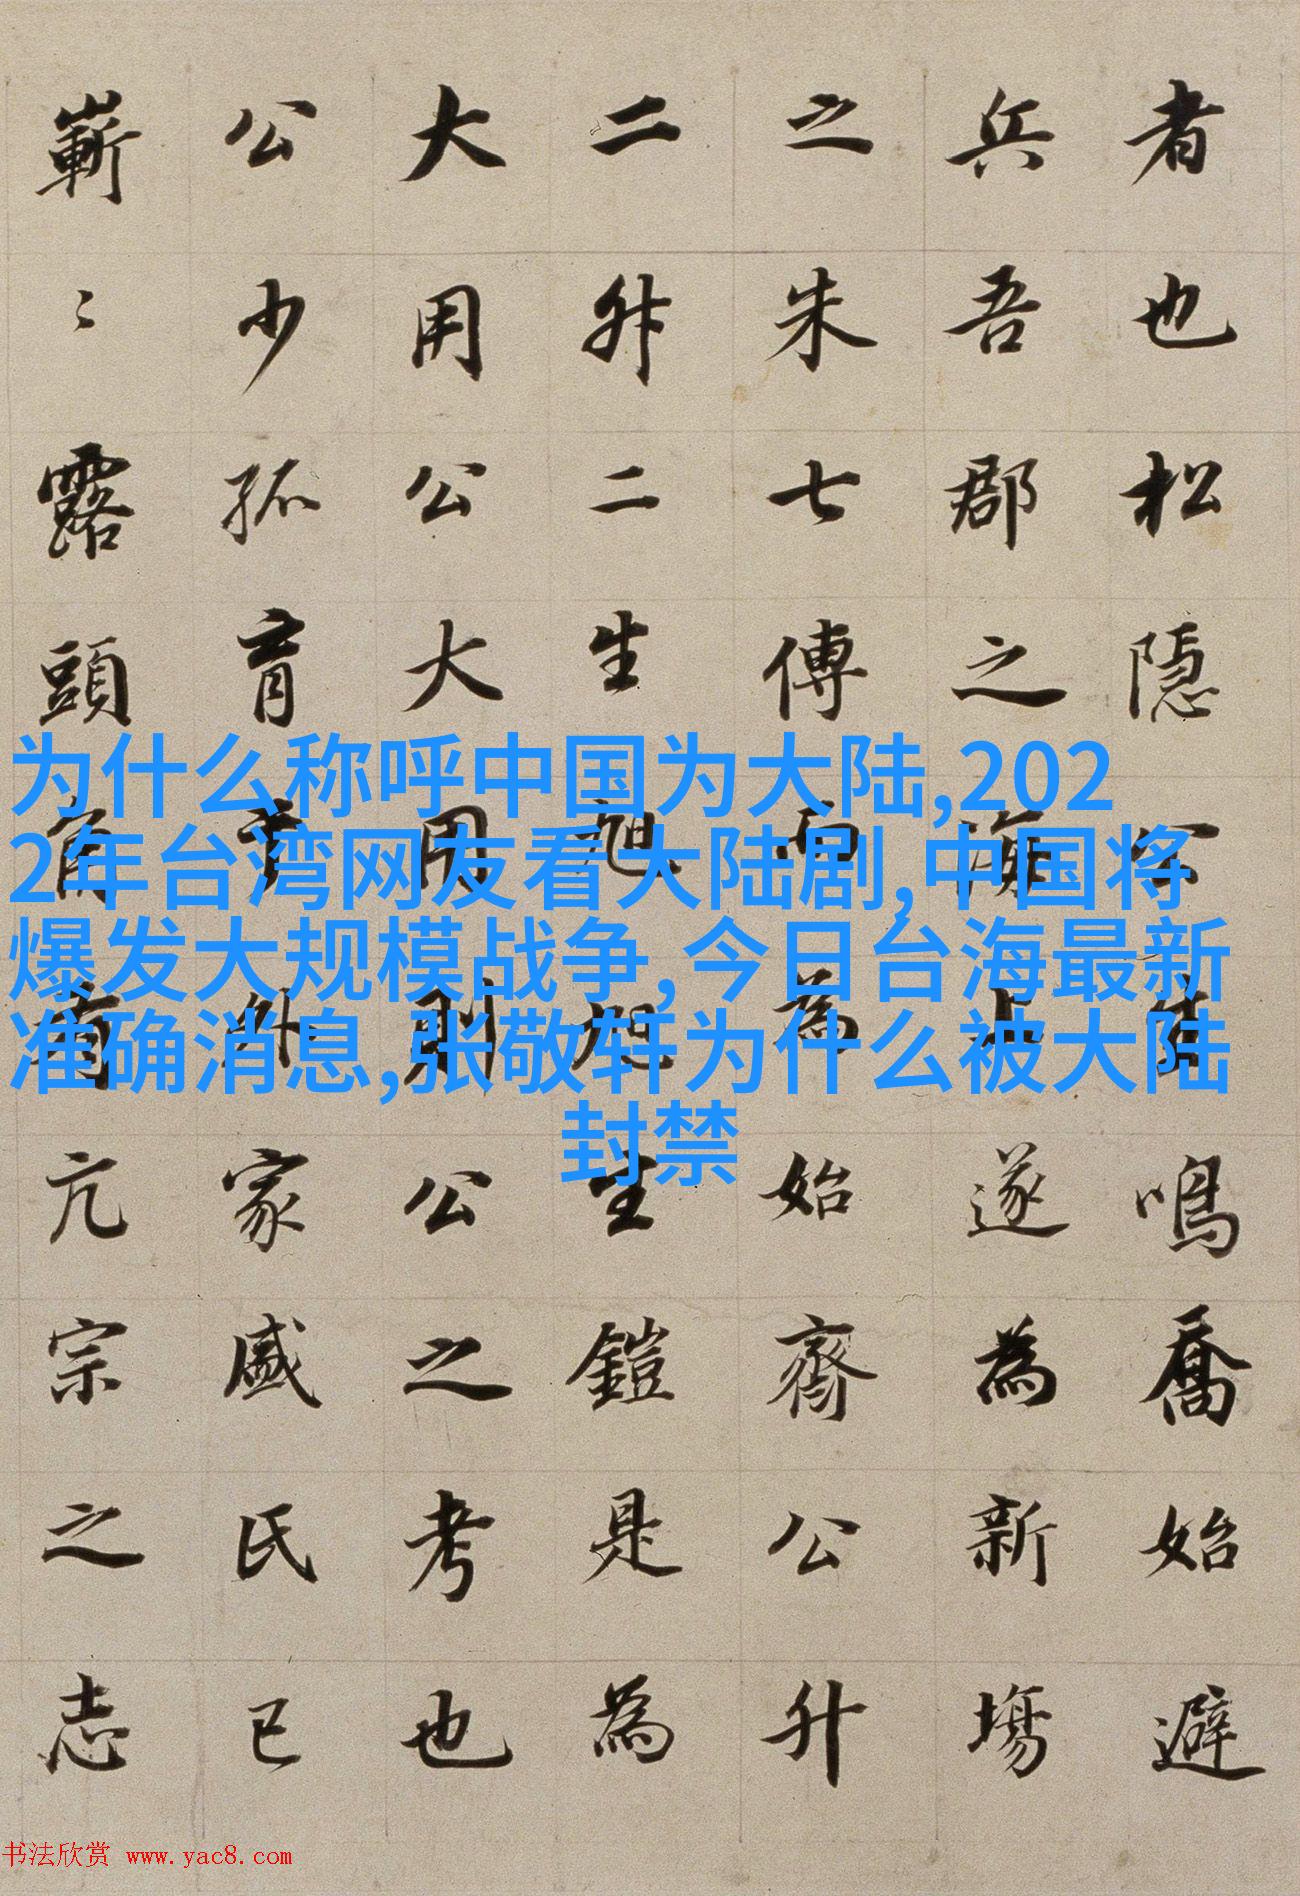 者也松隱鳴喬始避
兵吾郡之海上遂為新塲
之朱七傅而為始齊公升
二升二生旭旭生鎧是為
大用公大用則公之考也
公少孤育于外家戚氏已
嶄〻露頭角有亢宗之志
为什么称呼中国为大陆,202
2年台湾网友看大陆剧,中国将
爆发大规模战争,今日台海最新
准确消息,张敬轩为什么被大陆
封禁
书法欣赏 www.yac8.com